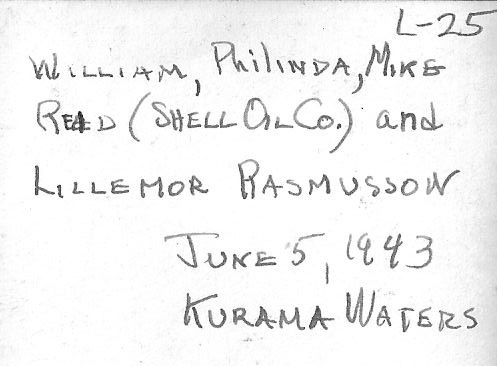 L-25
William, Philinda, Mike
Read (Shell Oil Co.) and
Lillemor Rasmusson
June 5, 1943
Kurama Waters